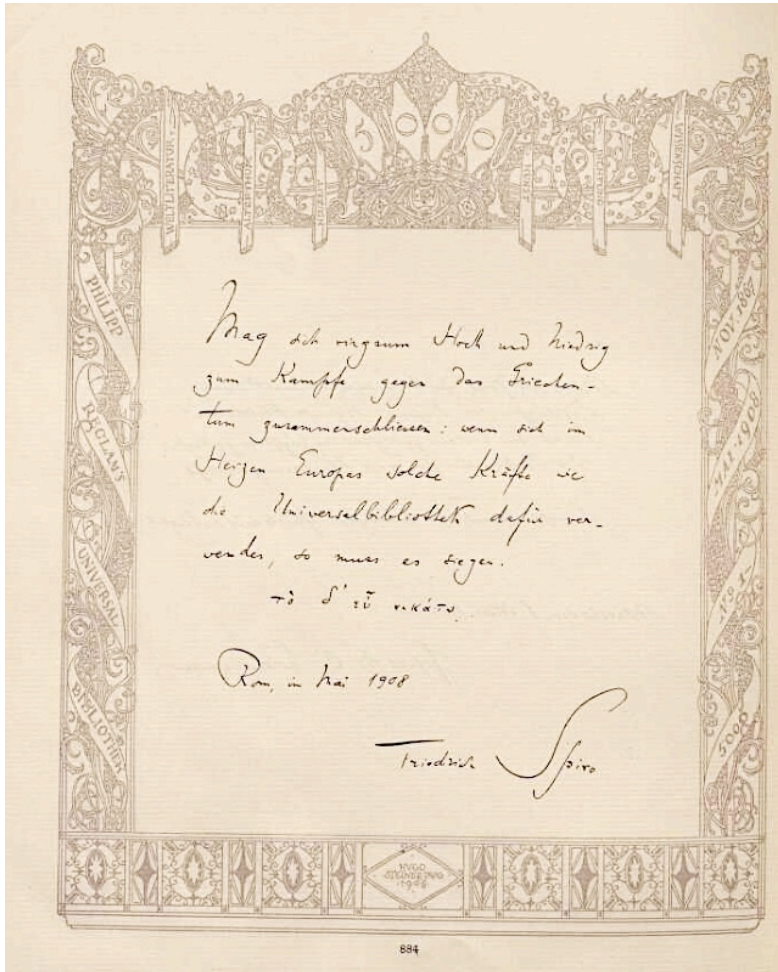 5000
WELTLITERATUR
WISSENSCHAFT
PHILIPP
RECLAM'S
UNIVERSAL
BIBLIOTHEK
NOV. 1867
MAI • 1908
No 1
5000
Mag sich ringsum Hoch und Niedrig
zum Kampfe gegen das Griechen-
tum zusammenschliessen: wenn sich im
Herzen Europas solche Kräfte wie
die Universalbibliothek dafür ver-
wenden, so muss es siegen.
τὸ δ' εὖ νικάτω.
Rom, im Mai 1908
Friedrich Spiro
HUGO
1908
884